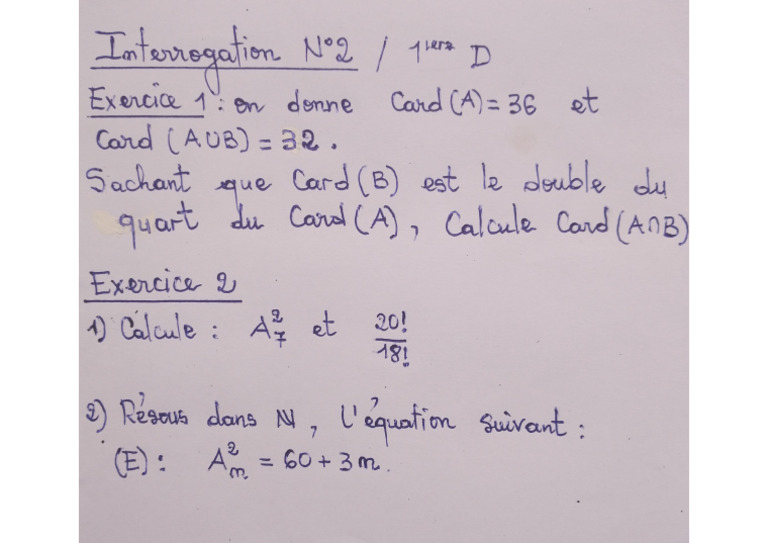 Interrogation N°2 / 1ière D
Exercice 1 : on donne Card(A) = 36 et
Card (A∪B) = 32.
Sachant que Card(B) est le double du
quart du Card(A), Calcule Card(A∩B)
Exercice 2
1) Calcule : A²₇ et 20!/18!
2) Résous dans ℕ, l'équation suivant :
(E) : A²ₘ = 60 + 3m.